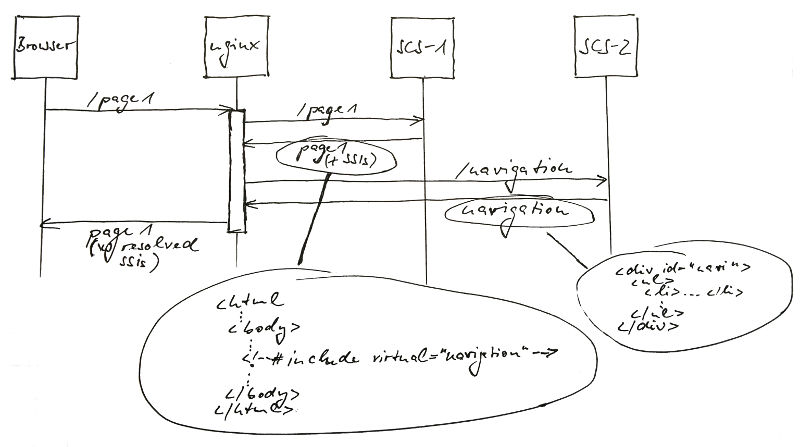 Browser
nginx
SCS-1
SCS-2
/page1
/page1
page1
(+ SSIs)
/navigation
navigation
page1
resolved
ssis)
<html
<body>
<!--#include virtual="navigation" -->
</body>
</html>
<div id="navi">
<ul>
<li>... </li>
</ul>
</div>